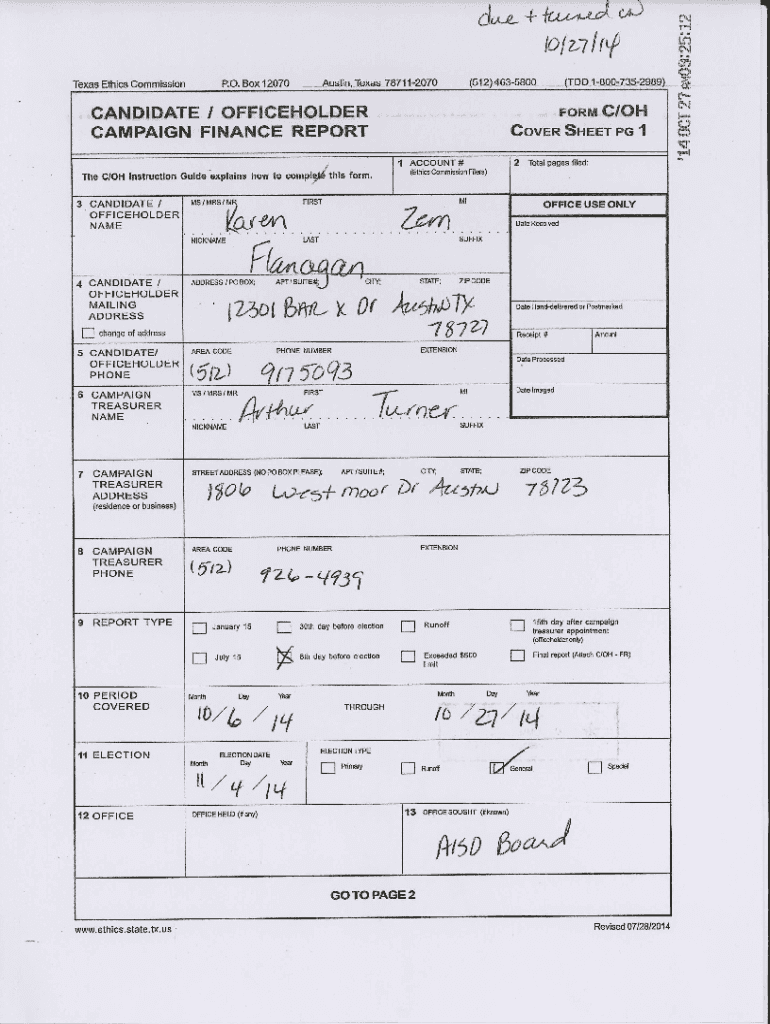 due + turned in
10/27/14
'14 OCT 27 AM09:25:12
Texas Ethics Commission P.O. Box 12070 Austin, Texas 78711-2070 (512) 463-5800 (TDD 1-800-735-2989)
CANDIDATE / OFFICEHOLDER
CAMPAIGN FINANCE REPORT
FORM C/OH
COVER SHEET PG 1
The C/OH Instruction Guide explains how to complete this form.
1 ACCOUNT #
(Ethics Commission Filers)
2 Total pages filed:
3 CANDIDATE /
OFFICEHOLDER
NAME
MS / MRS / MR FIRST MI
Karen Zem
NICKNAME LAST SUFFIX
Flanagan
OFFICE USE ONLY
Date Received
4 CANDIDATE /
OFFICEHOLDER
MAILING
ADDRESS
change of address
ADDRESS / PO BOX; APT / SUITE #; CITY; STATE; ZIP CODE
12301 BAR X Dr Austin TX
78727
Date Hand-delivered or Postmarked
Receipt # Amount
5 CANDIDATE/
OFFICEHOLDER
PHONE
AREA CODE PHONE NUMBER EXTENSION
(512) 9175093
Date Processed
6 CAMPAIGN
TREASURER
NAME
MS / MRS / MR FIRST MI
Arthur Turner
NICKNAME LAST SUFFIX
Date Imaged
7 CAMPAIGN
TREASURER
ADDRESS
(residence or business)
STREET ADDRESS (NO PO BOX PLEASE); APT / SUITE #; CITY; STATE; ZIP CODE
1806 West moor Dr Austin 78723
8 CAMPAIGN
TREASURER
PHONE
AREA CODE PHONE NUMBER EXTENSION
(512) 926-4939
9 REPORT TYPE
January 15 30th day before election Runoff 15th day after campaign
treasurer appointment
(officeholder only)
July 15 8th day before election Exceeded $500
limit
Final report (Attach C/OH - FR)
10 PERIOD
COVERED
Month Day Year
10/6/14
THROUGH
Month Day Year
10/27/14
11 ELECTION
ELECTION DATE
Month Day Year
11/4/14
ELECTION TYPE
Primary Runoff General Special
12 OFFICE
OFFICE HELD (if any)
13 OFFICE SOUGHT (if known)
AISD Board
GO TO PAGE 2
www.ethics.state.tx.us Revised 07/28/2014